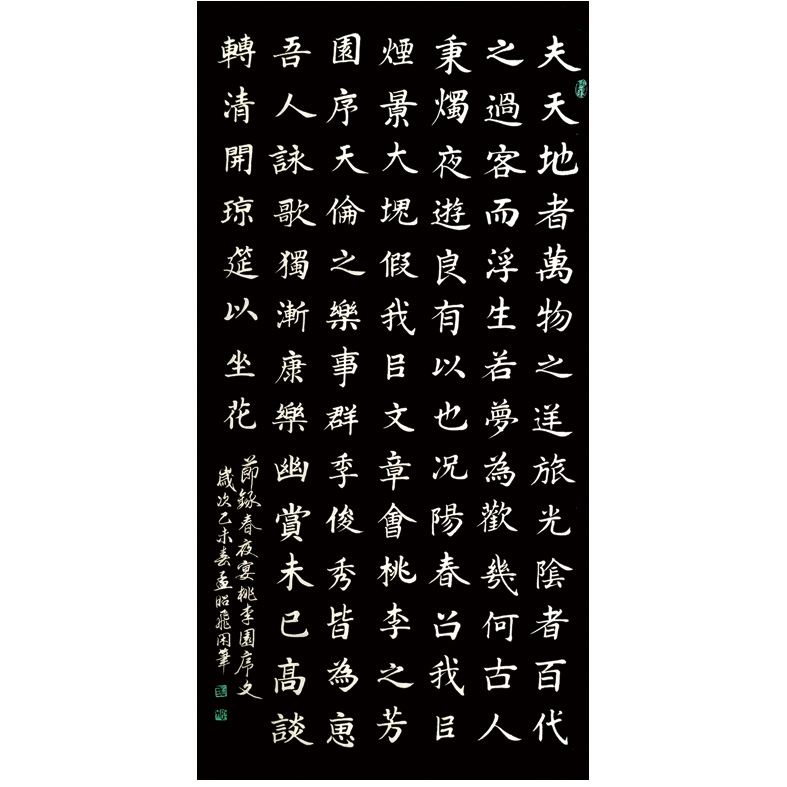 夫天地者萬物之逆旅光陰者百代
之過客而浮生若夢為歡幾何古人
秉燭夜遊良有以也况陽春召我㠯
煙景大塊假我㠯文章會桃李之芳
園序天倫之樂事群季俊秀皆為惠
吾人詠歌獨漸康樂幽賞未已髙談
轉清開琼筵以坐花
節錄春夜宴桃李園序文
歲次己未春孟昭飛用筆